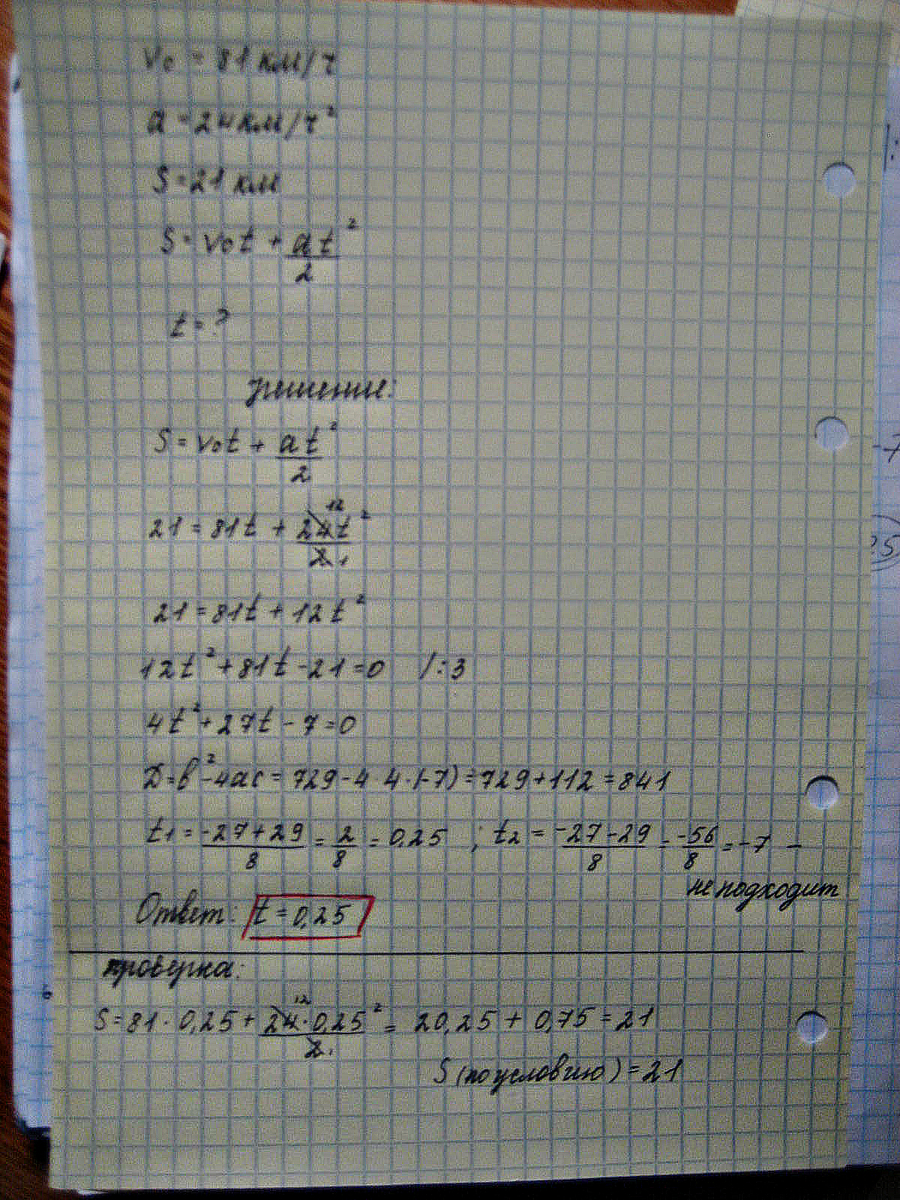 v₀ = 81 км/ч
a = 24 км/ч²
S = 21 км
S = v₀t + at²/2
t = ?
решение:
S = v₀t + at²/2
21 = 81t + 24t²/2 12 1
21 = 81t + 12t²
12t² + 81t - 21 = 0 /:3
4t² + 27t - 7 = 0
D = b² - 4ac = 729 - 4 4·(-7) = 729 + 112 = 841
t₁ = -27+29/8 = 2/8 = 0,25 ; t₂ = -27-29/8 = -56/8 = -7 –
не подходит
Ответ: t = 0,25
проверка:
S = 81 · 0,25 + 24·0,25²/2 12 1 = 20,25 + 0,75 = 21
S (по условию) = 21
-7
25